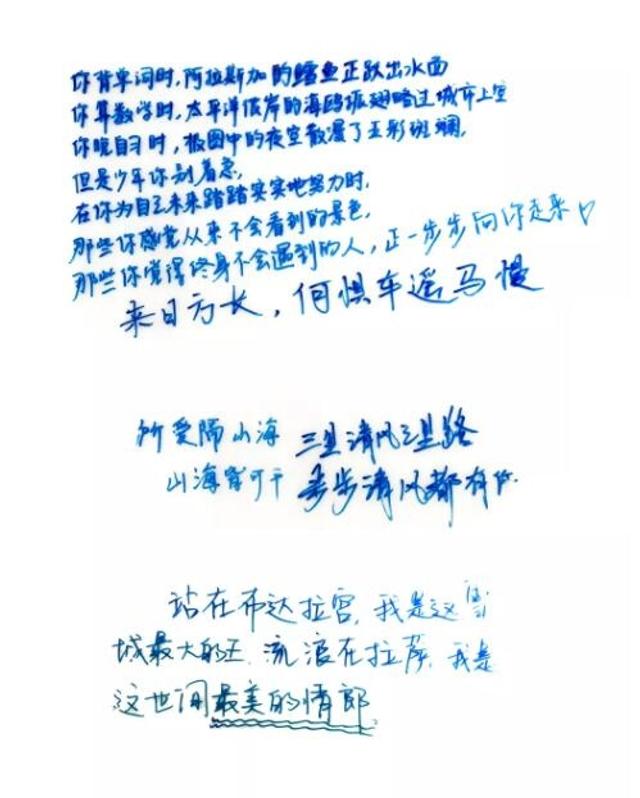 你背单词时,阿拉斯加的鳕鱼正跃出水面
你算数学时,太平洋彼岸的海鸥振翅略过城市上空
你晚自习时,极图中的夜空散漫了五彩斑斓,
但是少年你别着急,
在你为自己未来踏踏实实地努力时,
那些你感觉从来不会看到的景色,
那些你觉得终身不会遇到的人,正一步步向你走来♡
来日方长,何惧车遥马慢
所爱隔山海 三里清风三里路
山海皆可平 步步清风都有你.
站在布达拉宫,我是这雪
城最大的王.流浪在拉萨,我是
这世间最美的情郎.